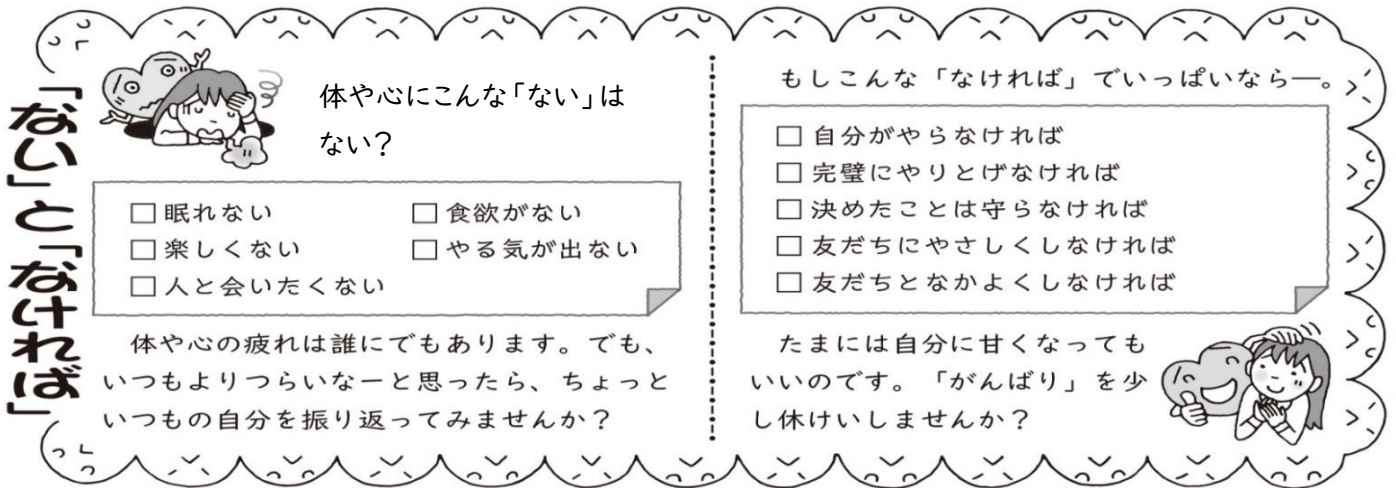 「ない」と「なければ」
体や心にこんな「ない」は
ない?
□眠れない □食欲がない
□楽しくない □やる気が出ない
□人と会いたくない
体や心の疲れは誰にでもあります。でも、
いつもよりつらいなーと思ったら、ちょっと
いつもの自分を振り返ってみませんか?
もしこんな「なければ」でいっぱいなら―。
□自分がやらなければ
□完璧にやりとげなければ
□決めたことは守らなければ
□友だちにやさしくしなければ
□友だちとなかよくしなければ
たまには自分に甘くなっても
いいのです。「がんばり」を少
し休けいしませんか?